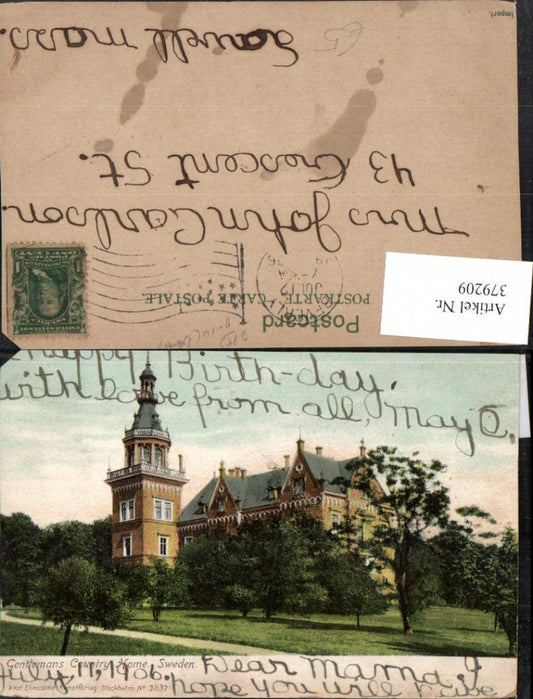 Import.
Postcard
POSTKARTE - CARTE POSTALE
JUL 12
Mrs John Carlson.
43 Crescent St.
Lowell mass.
£5
Artikel Nr.
379209
Happy Birth-day.
with love from all, May C,
Gentlemans Country Home, Sweden.
Axel Eliassons Konstförlag Stockholm Nº 3832
July, 11, 1906. Dear Mama, I
hope you will have